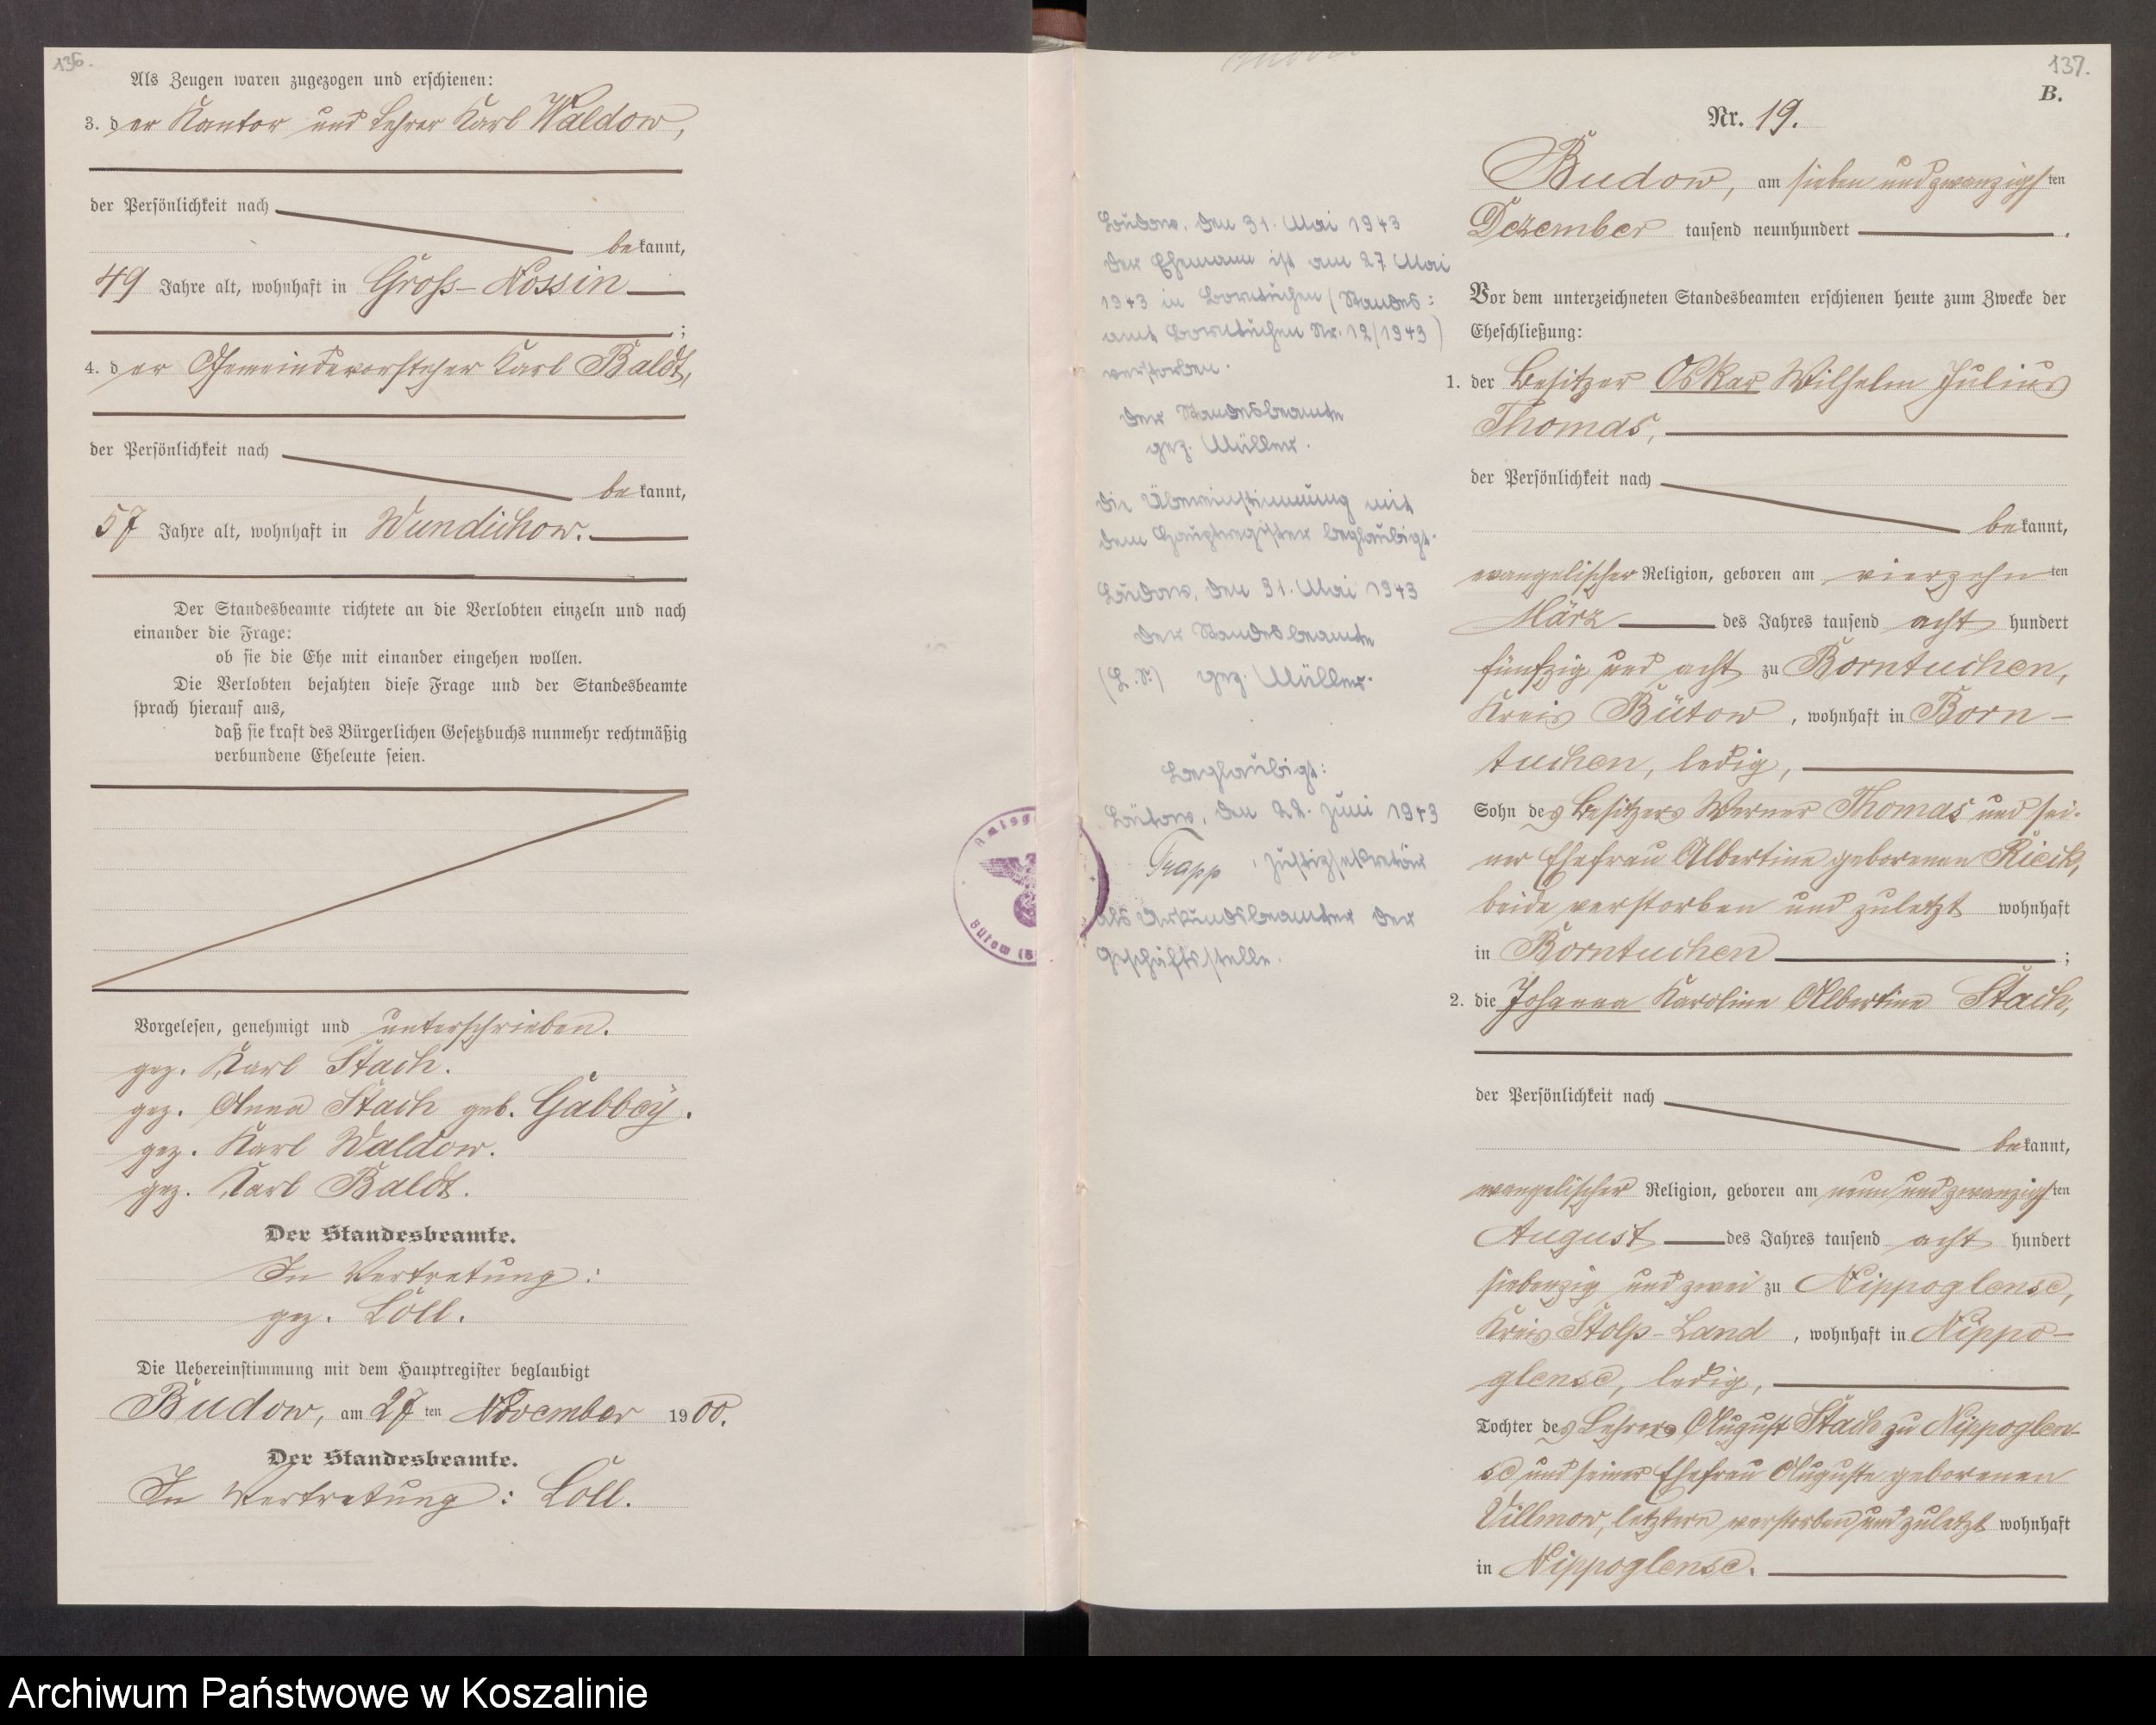 136.
Als Zeugen waren zugezogen und erschienen:
3. der Kantor und Lehrer Karl Waldow,
der Persönlichkeit nach
bekannt,
49 Jahre alt, wohnhaft in Gross-Nossin
;
4. der Gemeindevorsteher Karl Baldt,
der Persönlichkeit nach
bekannt,
57 Jahre alt, wohnhaft in Wundichow.
Der Standesbeamte richtete an die Verlobten einzeln und nach
einander die Frage:
ob sie die Ehe mit einander eingehen wollen.
Die Verlobten bejahten diese Frage und der Standesbeamte
sprach hierauf aus,
daß sie kraft des Bürgerlichen Gesetzbuchs nunmehr rechtmäßig
verbundene Eheleute seien.
Vorgelesen, genehmigt und unterschrieben.
gez. Karl Stach.
gez. Anna Stach geb. Gabbey.
gez. Karl Waldow.
gez. Karl Baldt.
Der Standesbeamte.
In Vertretung:
gez. Löll.
Die Uebereinstimmung mit dem Hauptregister beglaubigt
Budow, am 27ten November 1900.
Der Standesbeamte.
In Vertretung: Löll.
Amtsg
Bütow (B
Budow, den 31. Mai 1943
Der Ehemann ist am 27 Mai
1943 in Borntuchen (Standes:
amt Borntuchen Nr. 12/1943)
verstorben.
Der Standesbeamte
gez. Müller.
Die Übereinstimmung mit
dem Hauptregister beglaubigt.
Budow, den 31. Mai 1943
Der Standesbeamte
(L.S.) gez. Müller.
Beglaubigt:
Bütow, den 22. Juni 1943
Trapp, Justizsekretär
als Urkundsbeamter der
Geschäftsstelle.
137.
B.
Nr. 19.
Budow, am sieben und zwanzigsten
Dezember tausend neunhundert .
Vor dem unterzeichneten Standesbeamten erschienen heute zum Zwecke der
Eheschließung:
1. der Besitzer Oskar Wilhelm Julius
Thomas,
der Persönlichkeit nach
bekannt,
evangelischer Religion, geboren am vierzehnten
März des Jahres tausend acht hundert
fünfzig und acht zu Borntuchen,
Kreis Bütow, wohnhaft in Born-
tuchen, ledig,
Sohn des Besitzers Werner Thomas und sei-
ner Ehefrau Albertine geborenen Ricik,
beide verstorben und zuletzt wohnhaft
in Borntuchen ;
2. die Johanna Karoline Albertine Stach,
der Persönlichkeit nach
bekannt,
evangelischer Religion, geboren am neun und zwanzigsten
August des Jahres tausend acht hundert
siebenzig und zwei zu Nippoglense,
Kreis Stolp-Land, wohnhaft in Nippo-
glense, ledig,
Tochter des Lehrers August Stach zu Nippoglen-
se und seiner Ehefrau Auguste geborenen
Villmow, letztere verstorben und zuletzt wohnhaft
in Nippoglense.
Archiwum Państwowe w Koszalinie